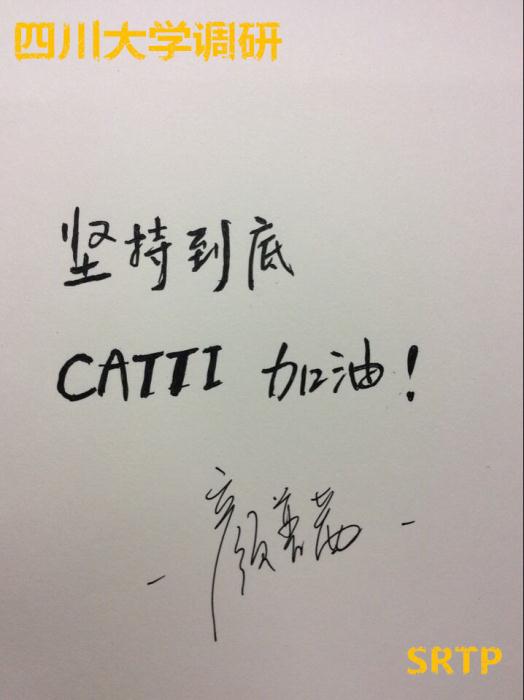 四川大学调研
坚持到底
CATTI 加油！
SRTP